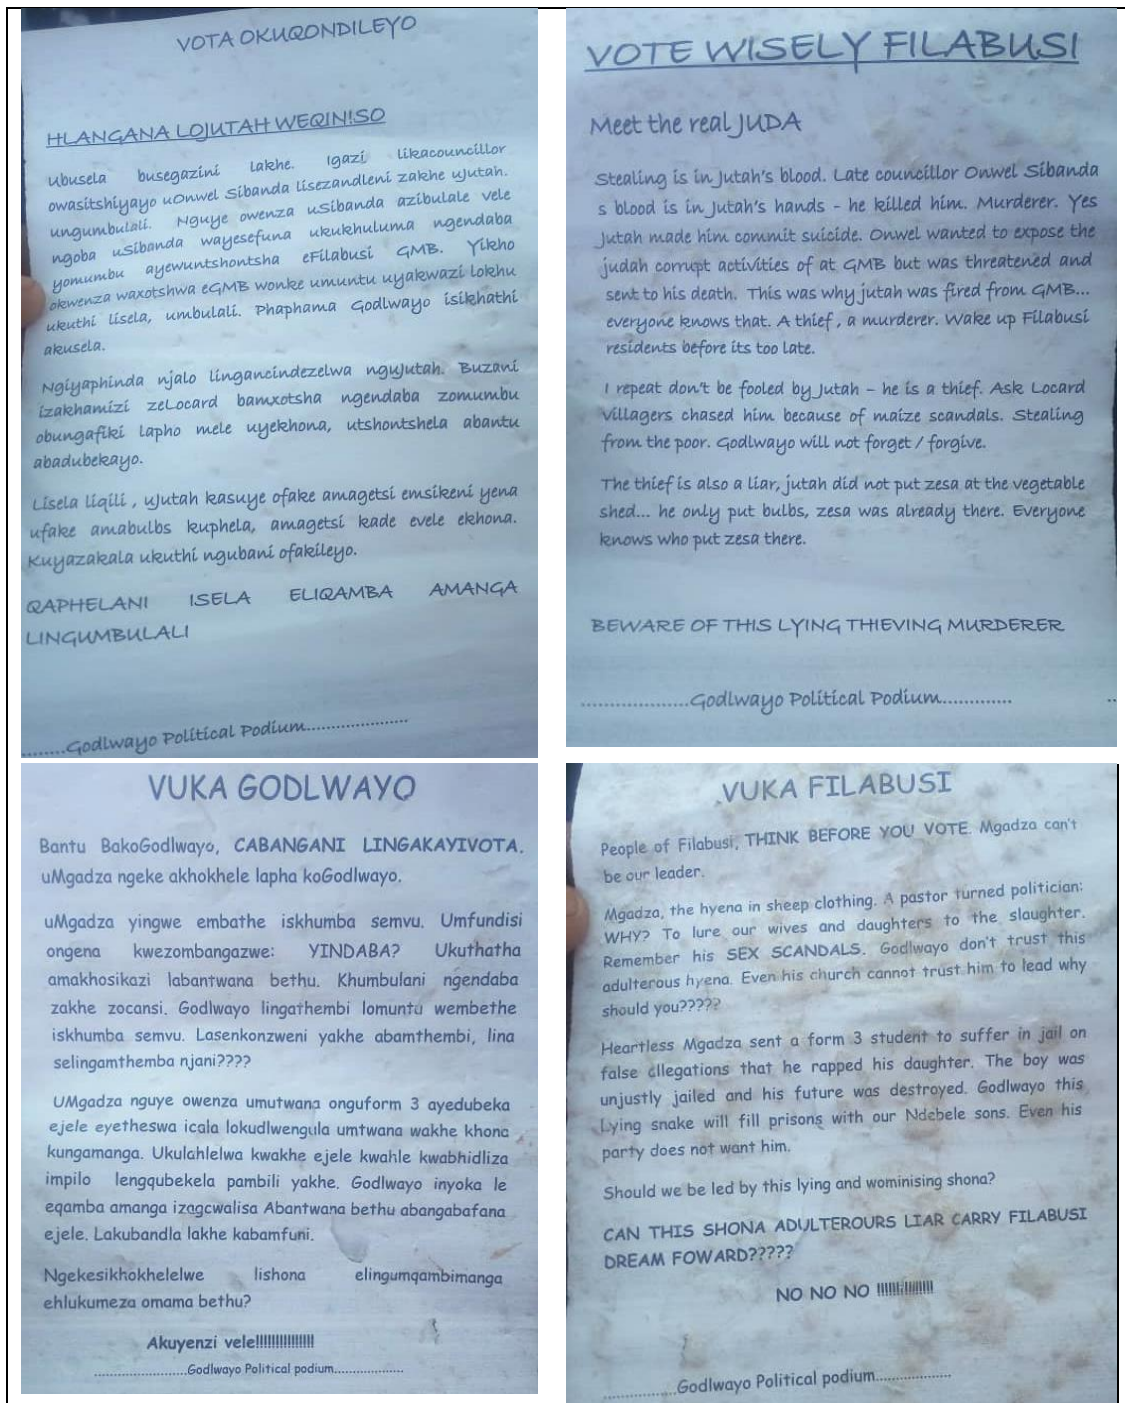 VOTA OKUQONDILEYO
HLANGANA LOJUTAH WEQINISO
Ubusela busegazini lakhe. Igazi likacouncillor
owasitshiyayo uOnwel Sibanda lisezandleni zakhe uJutah.
ungumbulali. Nguye owenza uSibanda azibulale vele
ngoba uSibanda wayesefuna ukukhuluma ngendaba
yomumbu ayewuntshontsha eFilabusi GMB. Yikho
okwenza waxotshwa eGMB wonke umuntu uyakwazi lokhu
ukuthi lisela, umbulali. Phaphama Godlwayo isikhathi
akusela.
Ngiyaphinda njalo lingancindezelwa nguJutah. Buzani
izakhamizi zeLocard bamxotsha ngendaba zomumbu
obungafiki lapho mele uyekhona, utshontshela abantu
abadubekayo.
Lisela liqili , uJutah kasuye ofake amagetsi emsikeni yena
ufake amabulbs kuphela, amagetsi kade evele ekhona.
Kuyazakala ukuthi ngubani ofakileyo.
QAPHELANI ISELA ELIQAMBA AMANGA
LINGUMBULALI
........Godlwayo Political Podium.....................
VOTE WISELY FILABUSI
Meet the real JUDA
Stealing is in Jutah's blood. Late councillor Onwel Sibanda
s blood is in Jutah's hands - he killed him. Murderer. Yes
Jutah made him commit suicide. Onwel wanted to expose the
judah corrupt activities of at GMB but was threatened and
sent to his death. This was why jutah was fired from GMB...
everyone knows that. A thief , a murderer. Wake up Filabusi
residents before its too late.
I repeat don't be fooled by Jutah – he is a thief. Ask Locard
villagers chased him because of maize scandals. Stealing
from the poor. Godlwayo will not forget / forgive.
The thief is also a liar, jutah did not put zesa at the vegetable
shed... he only put bulbs, zesa was already there. Everyone
knows who put zesa there.
BEWARE OF THIS LYING THIEVING MURDERER
....................Godlwayo Political Podium.............
VUKA GODLWAYO
Bantu BakoGodlwayo, CABANGANI LINGAKAYIVOTA.
uMgadza ngeke akhokhele lapha koGodlwayo.
uMgadza yingwe embathe iskhumba semvu. Umfundisi
ongena kwezombangazwe: YINDABA? Ukuthatha
amakhosikazi labantwana bethu. Khumbulani ngendaba
zakhe zocansi. Godlwayo lingathembi lomuntu wembethe
iskhumba semvu. Lasenkonzweni yakhe abamthembi, lina
selingamthemba njani????
UMgadza nguye owenza umutwana onguform 3 ayedubeka
ejele eyetheswa icala lokudlwengula umtwana wakhe khona
kungamanga. Ukulahlelwa kwakhe ejele kwahle kwabhidliza
impilo lengqubekela pambili yakhe. Godlwayo inyoka le
eqamba amanga izagcwalisa Abantwana bethu abangabafana
ejele. Lakubandla lakhe kabamfuni.
Ngekesikhokhelelwe lishona elingumqambimanga
ehlukumeza omama bethu?
Akuyenzi vele!!!!!!!!!!!!!!!
.........................Godlwayo Political podium...................
VUKA FILABUSI
People of Filabusi, THINK BEFORE YOU VOTE. Mgadza can't
be our leader.
Mgadza, the hyena in sheep clothing. A pastor turned politician:
WHY? To lure our wives and daughters to the slaughter.
Remember his SEX SCANDALS. Godlwayo don't trust this
adulterous hyena. Even his church cannot trust him to lead why
should you?????
Heartless Mgadza sent a form 3 student to suffer in jail on
false allegations that he rapped his daughter. The boy was
unjustly jailed and his future was destroyed. Godlwayo this
Lying snake will fill prisons with our Ndebele sons. Even his
party does not want him.
Should we be led by this lying and wominising shona?
CAN THIS SHONA ADULTEROURS LIAR CARRY FILABUSI
DREAM FOWARD?????
NO NO NO !!!!!!!!!!!!!!!
.................Godlwayo Political podium..................